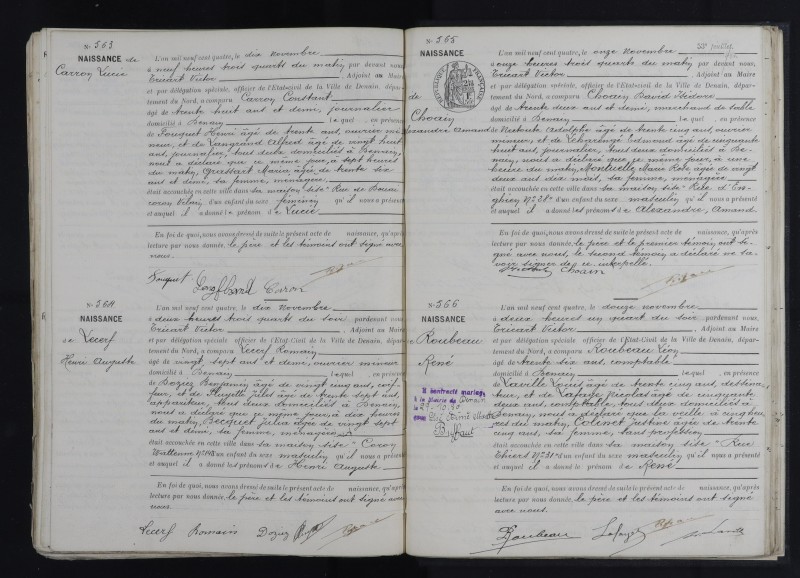 N° 563
NAISSANCE de
Carron Lucie
L'an mil neuf cent quatre, le dix Novembre
à neuf heures trois quarts du matin par devant nous
Tricart Victor Adjoint au Maire
et par délégation spéciale, officier de l'Etat-civil de la Ville de Denain, dépar-
tement du Nord, a comparu Carron Constant
âgé de trente huit ans et demi, journalier
domicilié à Denain lequel, en présence
de Fouquet Henri âgé de trente ans, ouvrier mi-
neur, et de Alfred âgé de vingt huit
ans, journalier, tous deux domiciliés à Denain,
nous a déclaré que ce même jour, à sept heures
du matin, Grattart Maria âgée de trente six
ans et demi, sa femme, ménagère
était accouchée en cette ville dans sa maison site Rue de
d'un enfant du sexe féminin qu'il nous a présenté
et auquel il a donné le prénom de Lucie
En foi de quoi, nous avons dressé de suite le présent acte de naissance, qu'après
lecture par nous donnée, le père et les témoins ont signé avec
nous.
Fouquet Caron
N° 564
NAISSANCE
de Lecerf
Henri Auguste
L'an mil neuf cent quatre, le dix Novembre
à deux heures trois quarts du soir, pardevant nous,
Tricart Victor, Adjoint au Maire
et par délégation spéciale officier de l'Etat-Civil de la Ville de Denain, dépar-
tement du Nord, a comparu Lecerf Romain
âgé de vingt sept ans et demi, ouvrier mineur
domicilié à Denain lequel, en présence
de Doziez Benjamin âgé de vingt cinq ans, coif-
feur, et de Jules âgé de trente sept ans,
appariteur, tous deux domiciliés à Denain,
nous a déclaré que ce même jour, à dix heures
du matin, Becquet Julia âgée de vingt sept
ans et demi, sa femme, ménagère
était accouchée en cette ville dans sa maison site Coron
d'un enfant du sexe masculin qu'il nous a présenté
et auquel il a donné les prénoms de Henri Auguste
En foi de quoi, nous avons dressé de suite le présent acte de naissance, qu'après
lecture par nous donnée, le père et les témoins ont signé avec
nous.
Lecerf Romain Doziez
N° 565
NAISSANCE
de
Choain
Alexandre Amand
L'an mil neuf cent quatre, le onze Novembre
à onze heures trois quarts du matin par devant nous,
Tricart Victor Adjoint au Maire
et par délégation spéciale, officier de l'Etat-civil de la Ville de Denain, dépar-
tement du Nord, a comparu Choain David Isidore
âgé de trente deux ans et demi, marchand de sable
domicilié à Denain lequel, en présence
de Adolphe âgé de trente cinq ans, ouvrier
mineur, et de Edmond âgé de cinquante
huit ans, journalier, tous deux domiciliés à De-
nain, nous a déclaré que ce même jour, à une
heure du matin, Marie Rose âgée de vingt
deux ans dix mois, sa femme, ménagère
était accouchée en cette ville dans sa maison site Rue d'En-
ghien d'un enfant du sexe masculin qu'il nous a présenté
et auquel il a donné les prénoms de Alexandre, Amand
En foi de quoi, nous avons dressé de suite le présent acte de naissance, qu'après
lecture par nous donnée, le père et le premier témoin ont si-
gné avec nous, le second témoin a déclaré ne sa-
voir signer de ce interpellé.
Choain
N° 566
NAISSANCE
de Roubeau
René
L'an mil neuf cent quatre, le douze novembre
à deux heures un quart du soir, pardevant nous,
Tricart Victor, Adjoint au Maire
et par délégation spéciale officier de l'Etat-Civil de la Ville de Denain, dépar-
tement du Nord, a comparu Roubeau Léon
âgé de trente six ans, comptable
domicilié à Denain lequel, en présence
de Louis âgé de trente cinq ans,
et de Nicolas âgé de cinquante
deux ans, tous deux domiciliés à
Denain, nous a déclaré que la veille à cinq heu-
res du matin, Justine âgée de trente
cinq ans, sa femme, sans profession
était accouchée en cette ville dans sa maison site Rue
Thiers d'un enfant du sexe masculin qu'il nous a présenté
et auquel il a donné le prénom de René
En foi de quoi, nous avons dressé de suite le présent acte de naissance, qu'après
lecture par nous donnée, le père et les témoins ont signé
avec nous.
Roubeau
A contracté mariage
à la Mairie de Denain